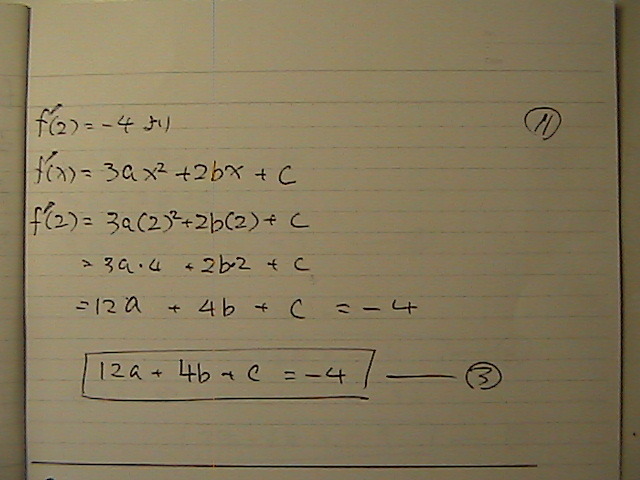 f'(2) = -4 より
⑪
f'(x) = 3ax² + 2bx + c
f'(2) = 3a(2)² + 2b(2) + c
= 3a・4 + 2b・2 + c
= 12a + 4b + c = -4
12a + 4b + c = -4 —— ③